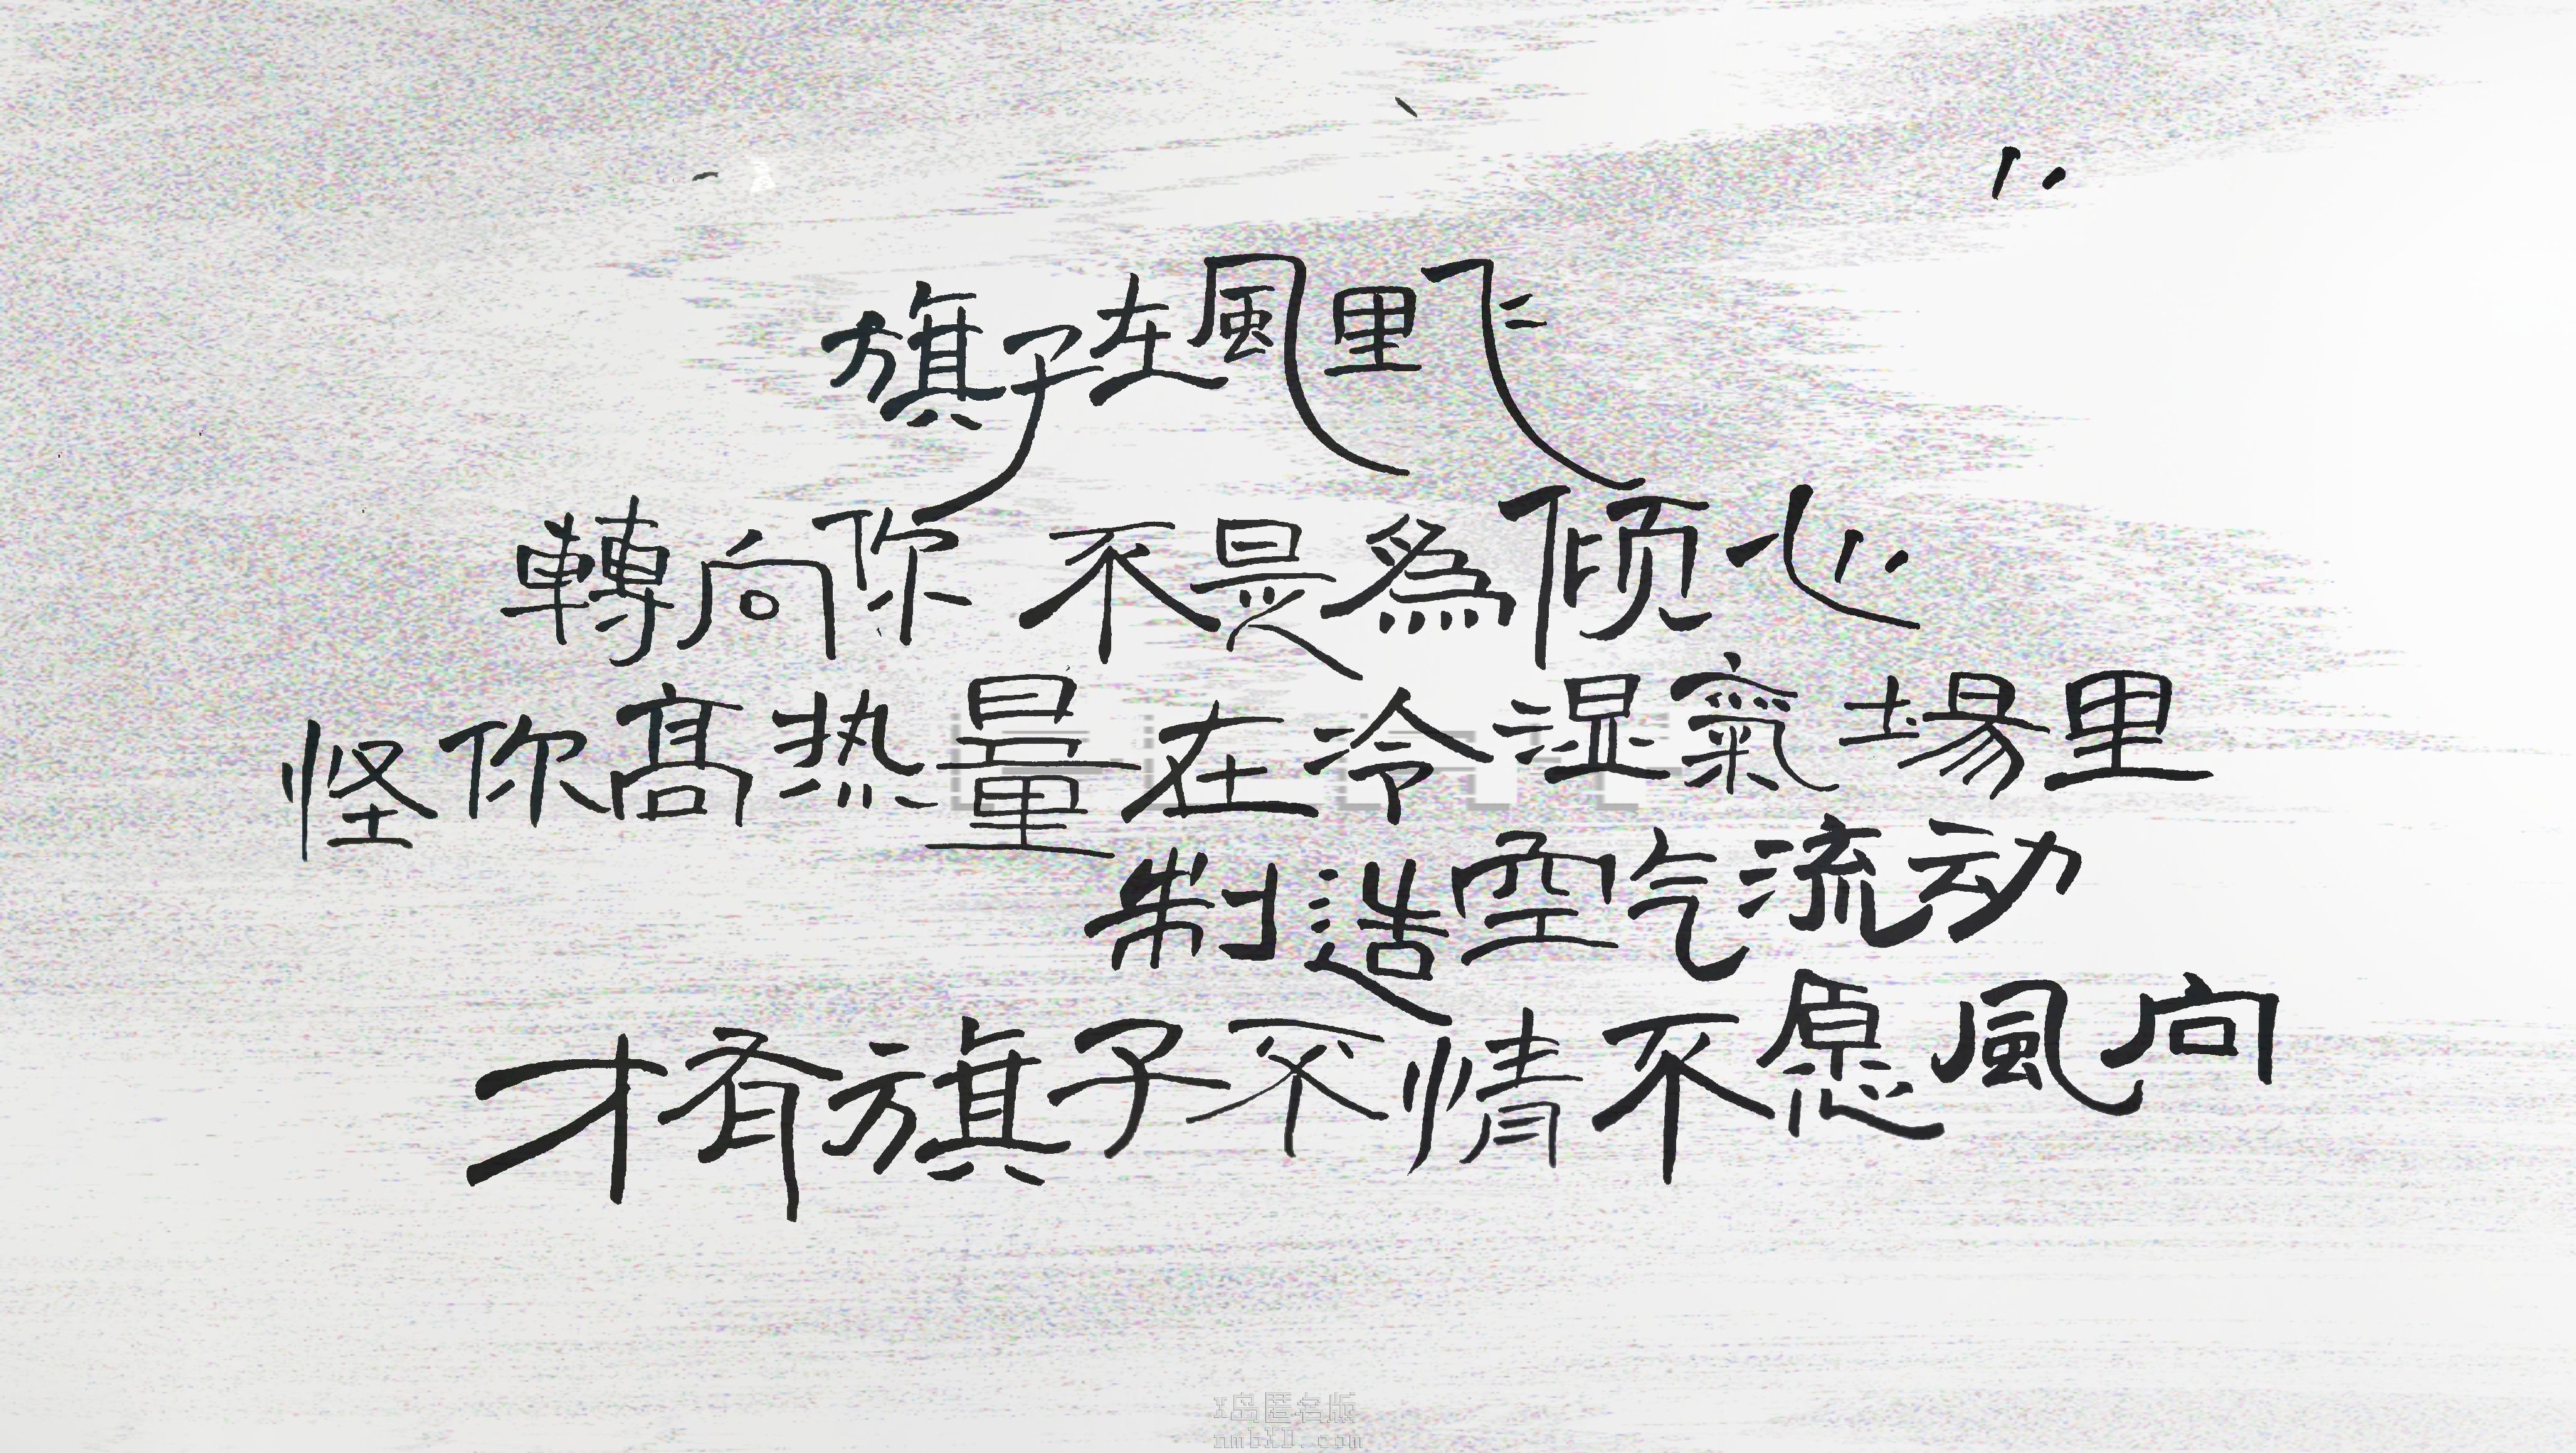 旗子在風里飞
轉向你 不是為倾心
怪你高热量在冷湿氣場里
制造空气流动
才有旗子不情不愿風向
X岛匿名版
nmbXD.com